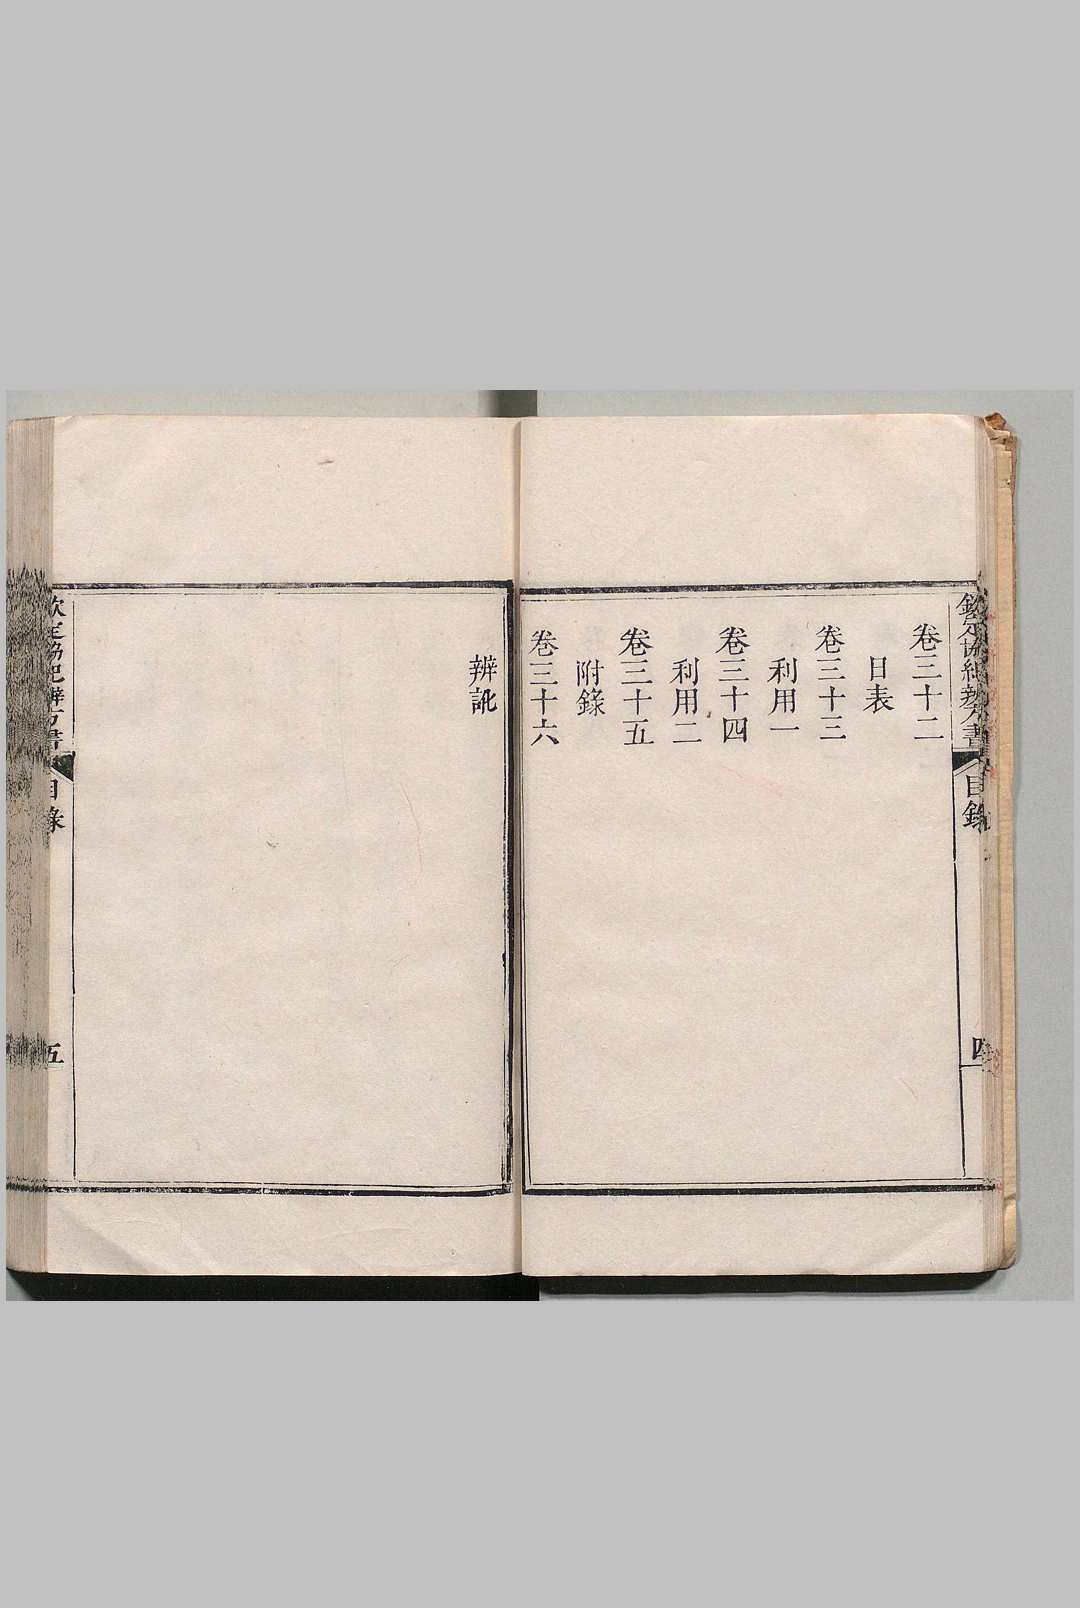 欽定協紀辨方書 目錄 四
卷三十二
日表
卷三十三
利用一
卷三十四
利用二
卷三十五
附錄
卷三十六
辨訛
欽定協紀辨方書 目錄 五